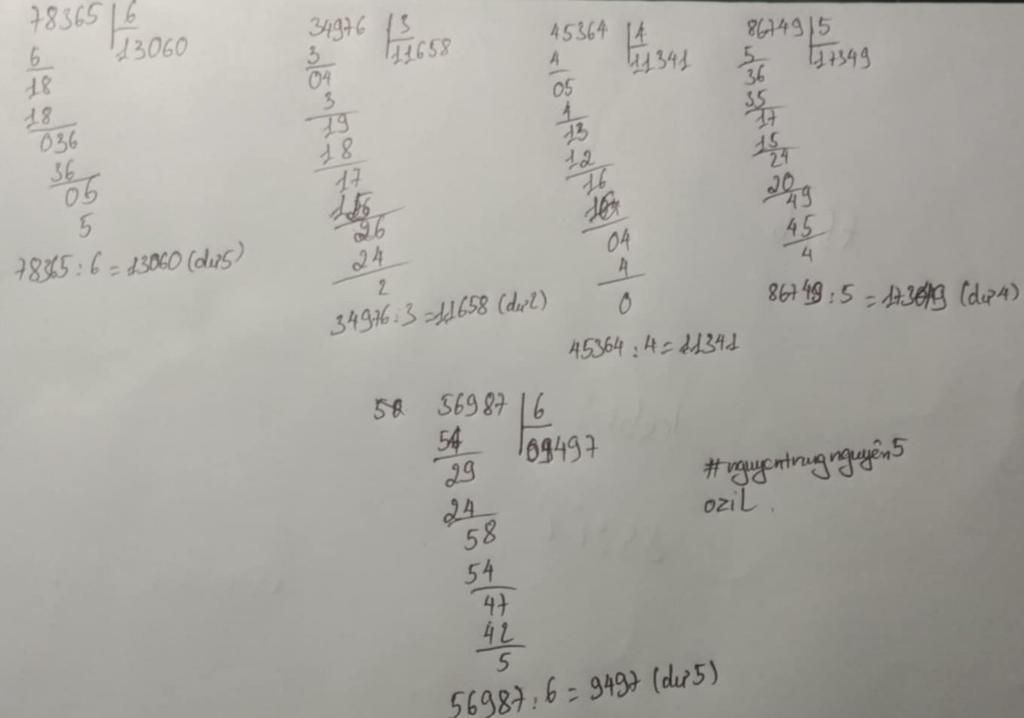 78365 6
13060
6
18
18
036
36
05
5
78365 : 6 = 13060 (dư 5)
34976 3
11658
3
04
3
19
18
17
15
26
24
2
34976 : 3 = 11658 (dư 2)
45364 4
11341
4
05
4
13
12
16
16
04
4
0
45364 : 4 = 11341
86749 5
17349
5
36
35
17
15
24
20
49
45
4
86749 : 5 = 17349 (dư 4)
56987 6
09497
54
29
24
58
54
47
42
5
56987 : 6 = 9497 (dư 5)
#nguyentrungnguyên5
oziL.